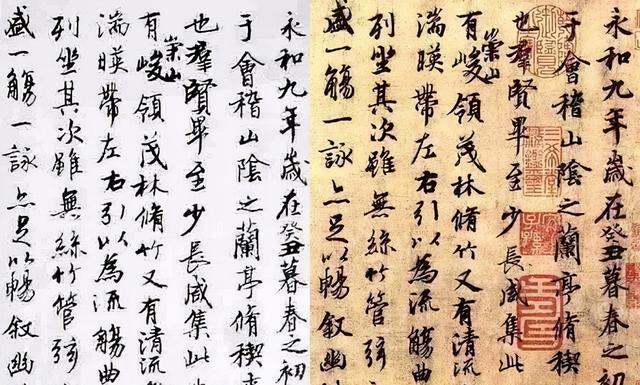 永和九年歲在癸丑暮春之初
于會稽山陰之蘭亭脩稧
也羣賢畢至少長咸集此
有崇山峻領茂林脩竹又有清流
湍暎帶左右引以為流觴曲
列坐其次雖無絲竹管弦
盛一觴一詠亦足以暢敘幽
永和九年歲在癸丑暮春之初
于會稽山陰之蘭亭脩稧
也羣賢畢至少長咸集此
有崇山峻領茂林脩竹又有清流
湍暎帶左右引以為流觴曲
列坐其次雖無絲竹管弦
盛一觴一詠亦足以暢敘幽